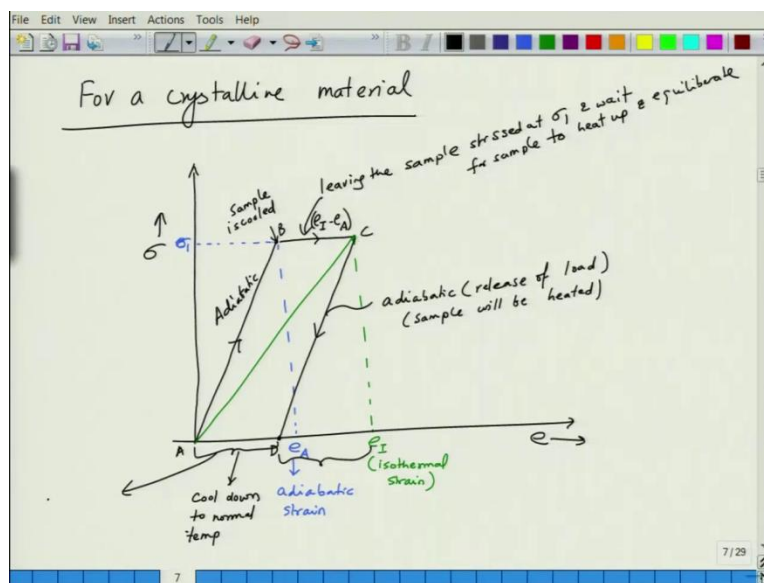 File Edit View Insert Actions Tools Help
For a crystalline material
leaving the sample strssed at σ₁ & wait
for sample to heat up & equilibrate
Sample
is cooled
B
(e_I - e_A)
C
σ
σ₁
Adiabatic
adiabatic (release of load)
(sample will be heated)
A
D
e_A
e_I
e
(isothermal
strain)
Cool down
to normal
temp
adiabatic
strain
7/29
7